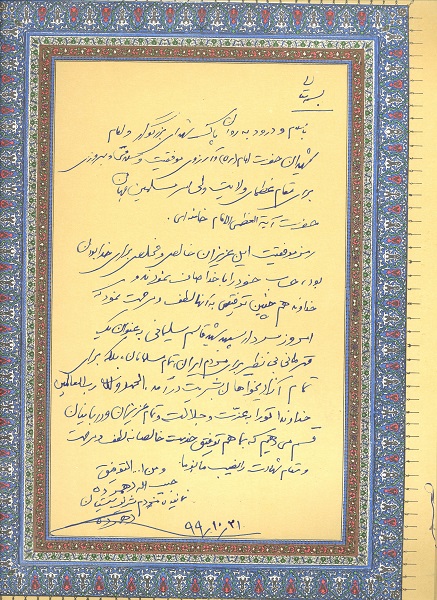 بسمه تعالی
با سلام و درود به روان پاک شهدای بزرگوار و امام
شهیدان حضرت امام (ره) و آرزوی موفقیت و سلامتی و پیروزی
برای مقام عظمای ولایت و ولی امر مسلمین جهان
حضرت آیة العظمی الامام خامنه ای.
رمز موفقیت این عزیزان خالص و مخلص برای خدا بودن
بود، حساب خود را با خدا صاف نمودند و
خداوند هم چنین توفیقی به آنها لطف و مرحمت نمود که
امروز سردار سپهبد شهید قاسم سلیمانی به عنوان یک
قهرمانی بی نظیر برای مردم ایران تمام مسلمانان، بلکه برای
تمام آزادیخواهان بشریت درآمد. الحمدلله رب العالمین
خداوندا تو را به عزت و جلالت و تمام عزیزان و دربانیان
قسم می دهیم که بما هم توفیق خدمت خالصانه لطف و مرحمت
و مقام شهادت را نصیب ما بفرما و من ا... التوفیق
حبیب اله دهمرده
نماینده مردم شریف سیستان
دهمرده
۹۹٫۱۰٫۲۱